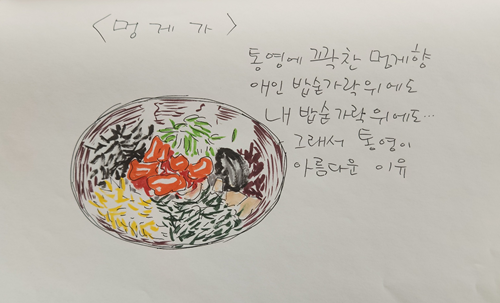 <멍게가>
통영에 꽉찬 멍게향
애인 밥숟가락 위에도
내 밥숟가락 위에도...
그래서 통영이
아름다운 이유